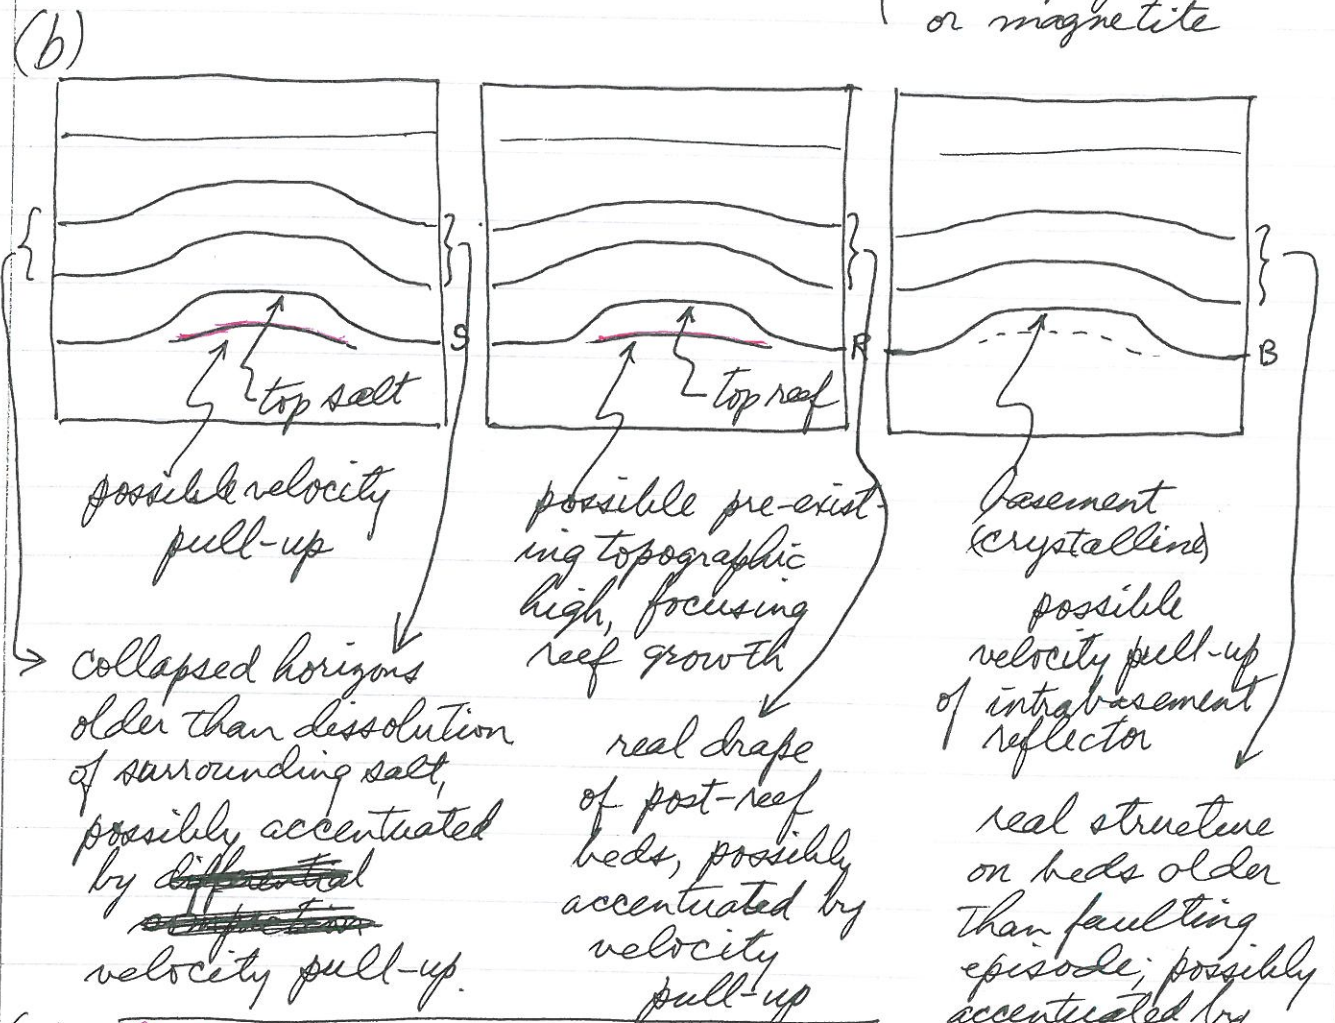 or magnetite
(b)
S
top salt
possible velocity
pull-up
collapsed horizons
older than dissolution
of surrounding salt,
possibly accentuated
by differential
compaction
velocity pull-up.
R
top reef
possible pre-exist-
ing topographic
high, focusing
reef growth
real drape
of post-reef
beds, possibly
accentuated by
velocity
pull-up
B
basement
(crystalline)
possible
velocity pull-up
of intrabasement
reflector
real structure
on beds older
than faulting
episode; possibly
accentuated by